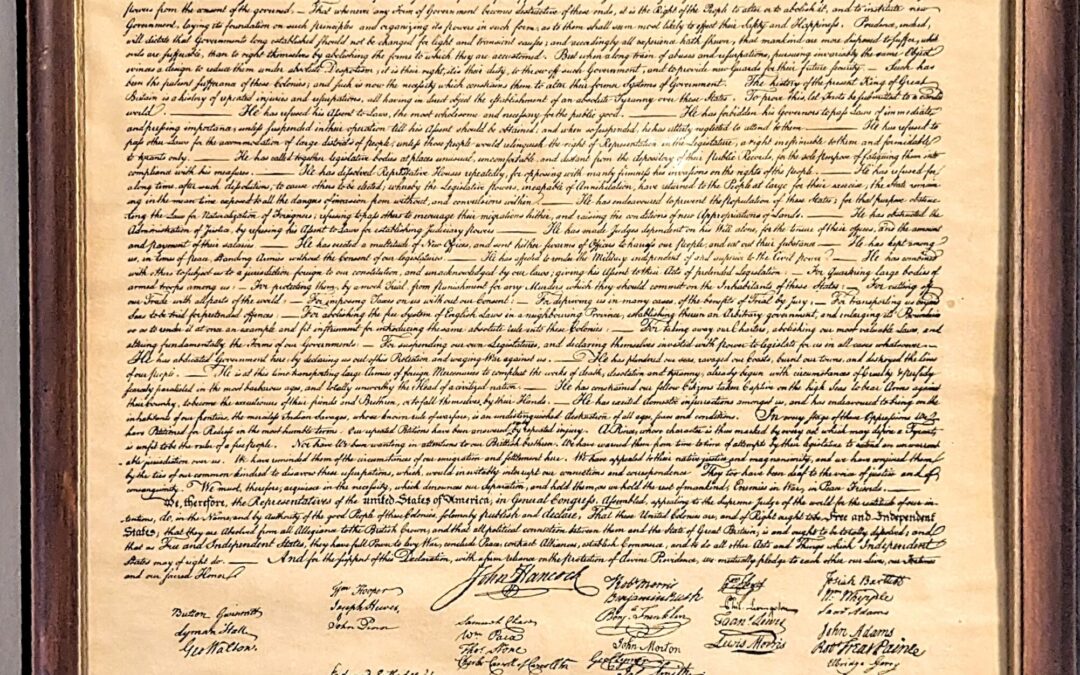 powers from the consent of the governed. — That whenever any Form of Government becomes destructive of these ends, it is the Right of the People to alter or to abolish it, and to institute new
Government, laying its foundation on such principles and organizing its powers in such form, as to them shall seem most likely to effect their Safety and Happiness. Prudence, indeed,
will dictate that Governments long established should not be changed for light and transient causes; and accordingly all experience hath shewn, that mankind are more disposed to suffer, while
evils are sufferable, than to right themselves by abolishing the forms to which they are accustomed. But when a long train of abuses and usurpations, pursuing invariably the same Object
evinces a design to reduce them under absolute Despotism, it is their right, it is their duty, to throw off such Government, and to provide new Guards for their future security. — Such has
been the patient sufferance of these Colonies; and such is now the necessity which constrains them to alter their former Systems of Government. The history of the present King of Great
Britain is a history of repeated injuries and usurpations, all having in direct object the establishment of an absolute Tyranny over these States. To prove this, let Facts be submitted to a candid
world. — He has refused his Assent to Laws, the most wholesome and necessary for the public good. — He has forbidden his Governors to pass Laws of immediate
and pressing importance, unless suspended in their operation till his Assent should be obtained; and when so suspended, he has utterly neglected to attend to them. — He has refused to
pass other Laws for the accommodation of large districts of people, unless those people would relinquish the right of Representation in the Legislature, a right inestimable to them and formidable
to tyrants only. — He has called together legislative bodies at places unusual, uncomfortable, and distant from the depository of their Public Records, for the sole purpose of fatiguing them into
compliance with his measures. — He has dissolved Representative Houses repeatedly, for opposing with manly firmness his invasions on the rights of the people. — He has refused for
a long time, after such dissolutions, to cause others to be elected; whereby the Legislative powers, incapable of Annihilation, have returned to the People at large for their exercise; the State remain-
ing in the mean time exposed to all the dangers of invasion from without, and convulsions within. — He has endeavoured to prevent the Population of these States; for that purpose obstruc-
ting the Laws for Naturalization of Foreigners; refusing to pass others to encourage their migrations hither, and raising the conditions of new Appropriations of Lands. — He has obstructed the
Administration of Justice, by refusing his Assent to Laws for establishing Judiciary powers. — He has made Judges dependent on his Will alone, for the tenure of their offices, and the amount
and payment of their salaries. — He has erected a multitude of New Offices, and sent hither swarms of Officers to harass our People, and eat out their substance. — He has kept among
us, in times of peace, Standing Armies without the Consent of our legislatures. — He has affected to render the Military independent of and superior to the Civil power. — He has combined
with others to subject us to a jurisdiction foreign to our constitution, and unacknowledged by our laws; giving his Assent to their Acts of pretended Legislation: — For Quartering large bodies of
armed troops among us: — For protecting them, by a mock Trial, from punishment for any Murders which they should commit on the Inhabitants of these States: — For cutting off
our Trade with all parts of the world: — For imposing Taxes on us without our Consent: — For depriving us in many cases, of the benefits of Trial by Jury: — For transporting us beyond
Seas to be tried for pretended offences: — For abolishing the free System of English Laws in a neighbouring Province, establishing therein an Arbitrary government, and enlarging its Boundaries
so as to render it at once an example and fit instrument for introducing the same absolute rule into these Colonies: — For taking away our Charters, abolishing our most valuable Laws, and
altering fundamentally the Forms of our Governments: — For suspending our own Legislatures, and declaring themselves invested with power to legislate for us in all cases whatsoever. —
He has abdicated Government here, by declaring us out of his Protection and waging War against us. — He has plundered our seas, ravaged our Coasts, burnt our towns, and destroyed the lives
of our people. — He is at this time transporting large Armies of foreign Mercenaries to compleat the works of death, desolation and tyranny, already begun with circumstances of Cruelty & perfidy
scarcely paralleled in the most barbarous ages, and totally unworthy the Head of a civilized nation. — He has constrained our fellow Citizens taken Captive on the high Seas to bear Arms against
their Country, to become the executioners of their friends and Brethren, or to fall themselves by their Hands. — He has excited domestic insurrections amongst us, and has endeavoured to bring on the
inhabitants of our frontiers, the merciless Indian Savages, whose known rule of warfare, is an undistinguished destruction of all ages, sexes and conditions. In every stage of these Oppressions We
have Petitioned for Redress in the most humble terms: Our repeated Petitions have been answered by repeated injury. A Prince, whose character is thus marked by every act which may define a Tyrant,
is unfit to be the ruler of a free people. Nor have We been wanting in attentions to our Brittish brethren. We have warned them from time to time of attempts by their legislature to extend an unwarrant-
able jurisdiction over us. We have reminded them of the circumstances of our emigration and settlement here. We have appealed to their native justice and magnanimity, and we have conjured them
by the ties of our common kindred to disavow these usurpations, which, would inevitably interrupt our connections and correspondence. They too have been deaf to the voice of justice and of
consanguinity. We must, therefore, acquiesce in the necessity, which denounces our Separation, and hold them, as we hold the rest of mankind, Enemies in War, in Peace Friends.
We, therefore, the Representatives of the united States of America, in General Congress, Assembled, appealing to the Supreme Judge of the world for the rectitude of our in-
tentions, do, in the Name, and by Authority of the good People of these Colonies, solemnly publish and declare, That these United Colonies are, and of Right ought to be Free and Independent
States; that they are Absolved from all Allegiance to the British Crown, and that all political connection between them and the State of Great Britain, is and ought to be totally dissolved; and
that as Free and Independent States, they have full Power to levy War, conclude Peace, contract Alliances, establish Commerce, and to do all other Acts and Things which Independent
States may of right do. — And for the support of this Declaration, with a firm reliance on the protection of divine Providence, we mutually pledge to each other our Lives, our Fortunes
and our sacred Honor.
John Hancock
Button Gwinnett
Lyman Hall
Geo Walton.
Wm Hooper
Joseph Hewes,
John Penn
Samuel Chase
Wm Paca
Thos. Stone
Charles Carroll of Carrollton
Robt Morris
Benjamin Rush
Benj. Franklin
John Morton
Geo Clymer
Jas. Smith
Wm Floyd
Phil. Livingston
Frans. Lewis
Lewis Morris
Josiah Bartlett
Wm Whipple
Saml Adams
John Adams
Robt Treat Paine
Elbridge Gerry